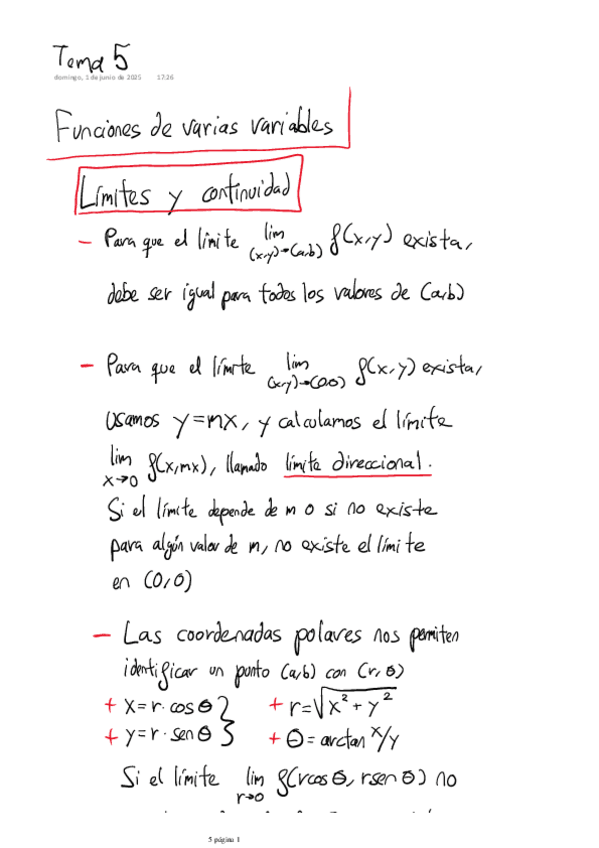 Tema 5
domingo, 1 de junio de 2025 17:26
Funciones de varias variables
Límites y continuidad
- Para que el límite lim (x,y)→(a,b) f(x,y) exista,
debe ser igual para todos los valores de (a,b)
- Para que el límite lim (x,y)→(0,0) f(x,y) exista,
usamos y=mx, y calculamos el límite
lim x→0 f(x,mx), llamado límite direccional.
Si el límite depende de m o si no existe
para algún valor de m, no existe el límite
en (0,0)
- Las coordenadas polares nos permiten
identificar un punto (a,b) con (r,θ)
+ x=r·cosθ } + r=√x²+y²
+ y=r·senθ } + θ=arctan x/y
Si el límite lim r→0 f(rcosθ, rsenθ) no
5 página 1